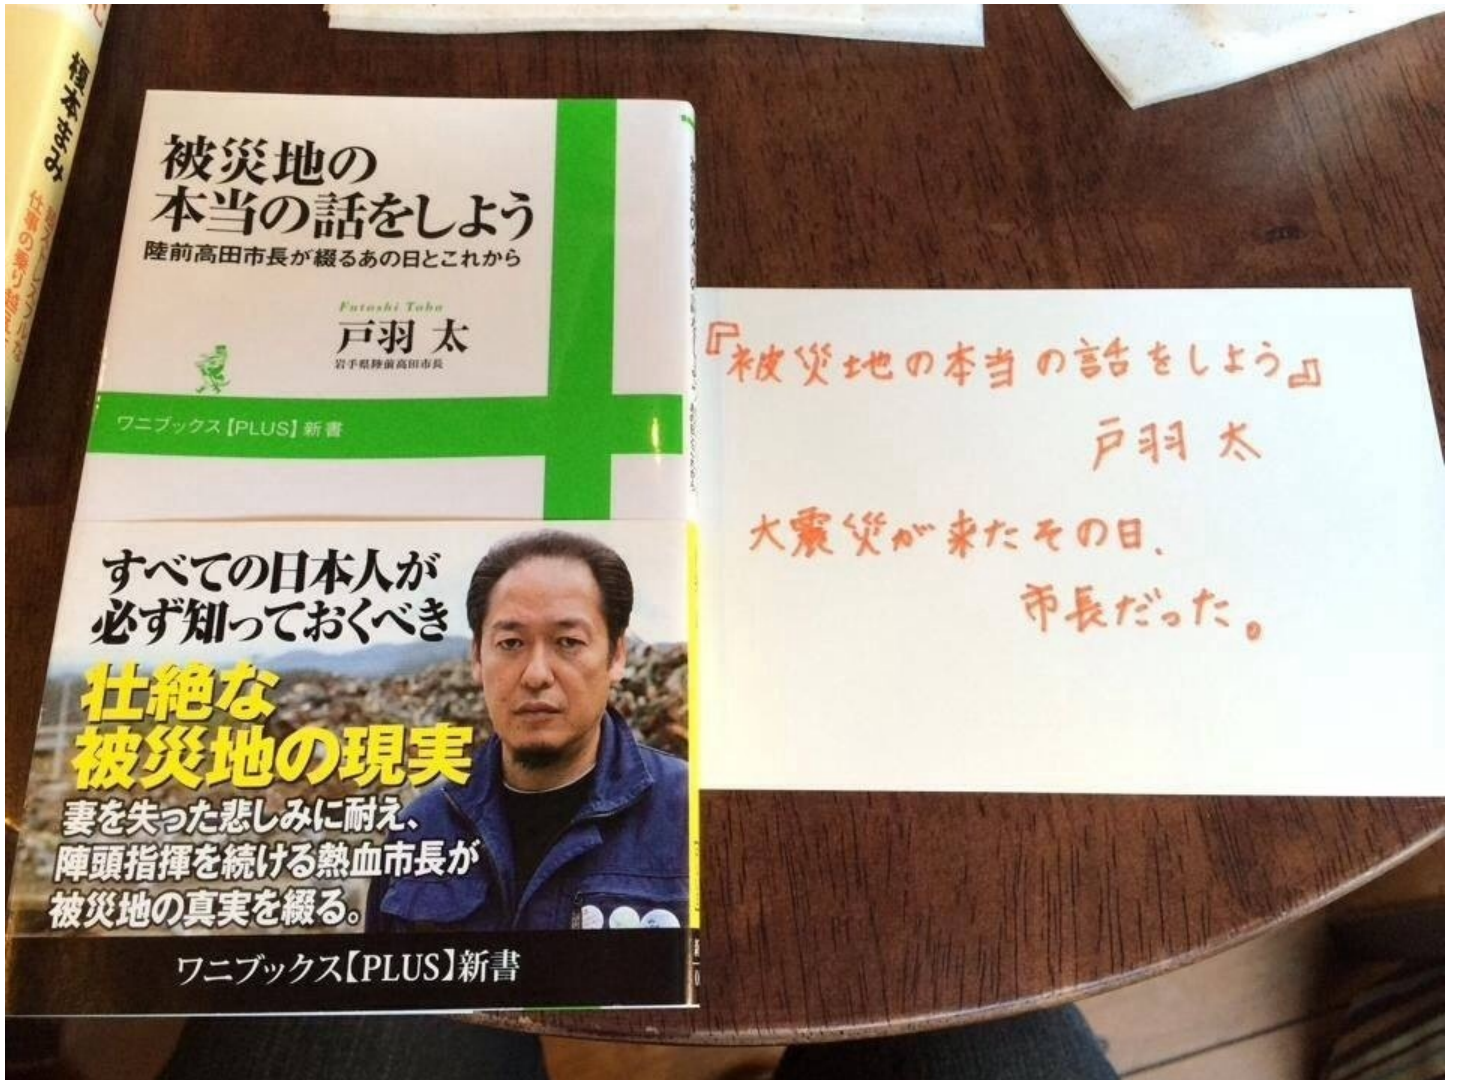 榎本まみ
仕事の乗り越え
被災地の
本当の話をしよう
陸前高田市長が綴るあの日とこれから
Futoshi Toba
戸羽 太
岩手県陸前高田市長
ワニブックス【PLUS】新書
すべての日本人が
必ず知っておくべき
壮絶な
被災地の現実
妻を失った悲しみに耐え、
陣頭指揮を続ける熱血市長が
被災地の真実を綴る。
ワニブックス【PLUS】新書
『被災地の本当の話をしよう』
戸羽 太
大震災が来たその日、
市長だった。